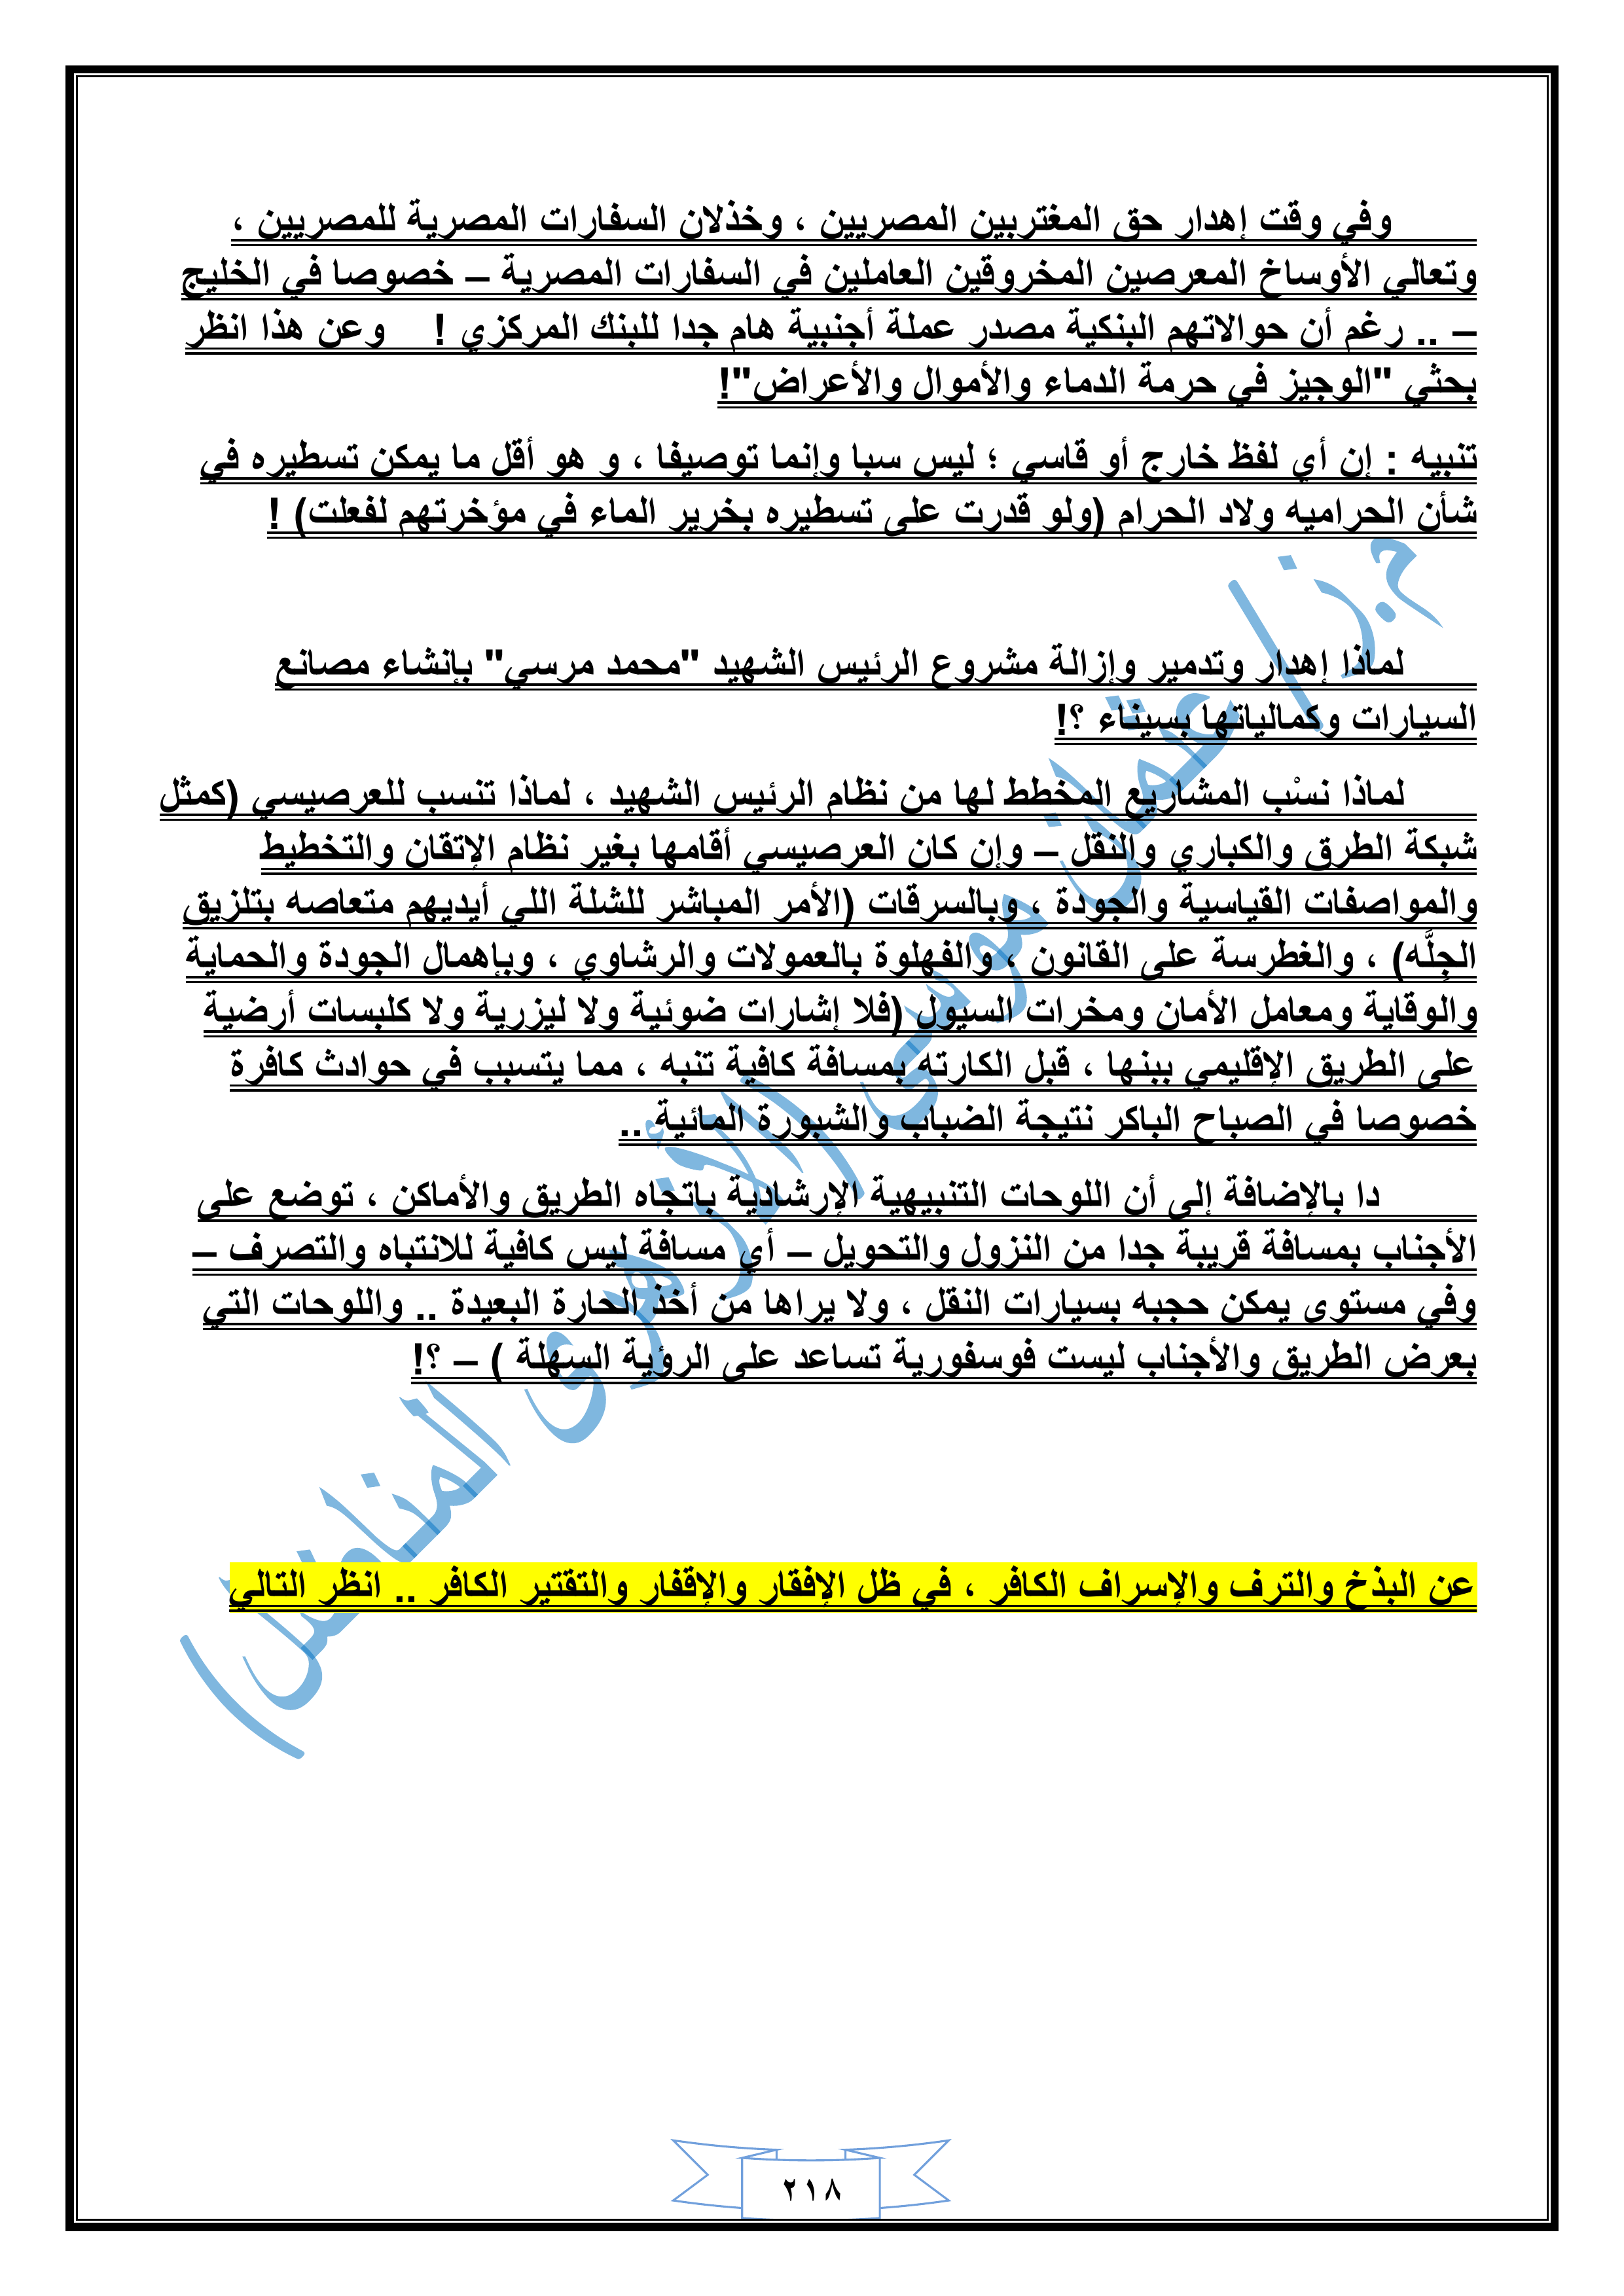 وفي وقت إهدار حق المغتربين المصريين ، وخذلان السفارات المصرية للمصريين ،
وتعالي الأوساخ المعرصين المخروقين العاملين في السفارات المصرية – خصوصا في الخليج
– .. رغم أن حوالاتهم البنكية مصدر عملة أجنبية هام جدا للبنك المركزي ! وعن هذا انظر
بحثي "الوجيز في حرمة الدماء والأموال والأعراض"!
تنبيه : إن أي لفظ خارج أو قاسي ؛ ليس سبا وإنما توصيفا ، و هو أقل ما يمكن تسطيره في
شأن الحراميه ولاد الحرام (ولو قدرت على تسطيره بخرير الماء في مؤخرتهم لفعلت) !
لماذا إهدار وتدمير وإزالة مشروع الرئيس الشهيد "محمد مرسي" بإنشاء مصانع
السيارات وكمالياتها بسيناء ؟!
لماذا نسْب المشاريع المخطط لها من نظام الرئيس الشهيد ، لماذا تنسب للعرصيسي (كمثل
شبكة الطرق والكباري والنقل – وإن كان العرصيسي أقامها بغير نظام الإتقان والتخطيط
والمواصفات القياسية والجودة ، وبالسرقات (الأمر المباشر للشلة اللي أيديهم متعاصه بتلزيق
الجِلَّه) ، والغطرسة على القانون ، والفهلوة بالعمولات والرشاوي ، وبإهمال الجودة والحماية
والوقاية ومعامل الأمان ومخرات السيول (فلا إشارات ضوئية ولا ليزرية ولا كلبسات أرضية
على الطريق الإقليمي ببنها ، قبل الكارته بمسافة كافية تنبه ، مما يتسبب في حوادث كافرة
خصوصا في الصباح الباكر نتيجة الضباب والشبورة المائية ..
دا بالإضافة إلى أن اللوحات التنبيهية الإرشادية باتجاه الطريق والأماكن ، توضع على
الأجناب بمسافة قريبة جدا من النزول والتحويل – أي مسافة ليس كافية للانتباه والتصرف –
وفي مستوى يمكن حجبه بسيارات النقل ، ولا يراها من أخذ الحارة البعيدة .. واللوحات التي
بعرض الطريق والأجناب ليست فوسفورية تساعد على الرؤية السهلة ) – ؟!
عن البذخ والترف والإسراف الكافر ، في ظل الإفقار والإقفار والتقتير الكافر .. انظر التالي
٢١٨